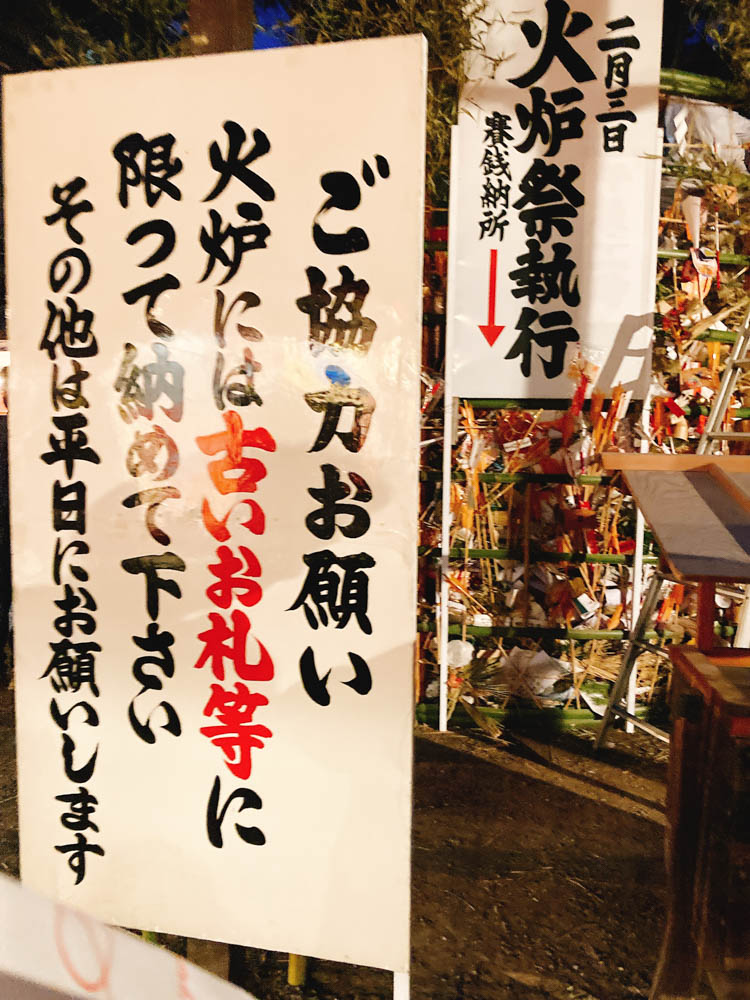 ご協力お願い
火炉には古いお札等に
限つて納めて下さい
その他は平日にお願いします
二月三日
火炉祭執行
賽銭納所